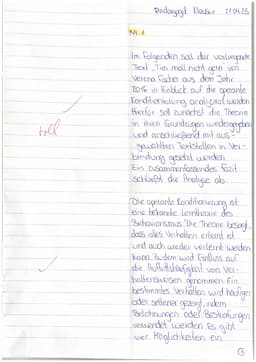 Pädagogik Klausur 21.04.23
Nr. 1
Im Folgenden soll der vorliegende
Text „Tim mal nicht gern" von
Verena Fischer aus dem Jahr
2016 in Hinblick auf die operante
Konditionierung analysiert werden.
Hierfür soll zunächst die Theorie
in ihren Grundzügen wiedergegeben
und anschließend mit aus-
gewählten Textstellen in Ver-
bindung gesetzt werden.
Ein zusammenfassendes Fazit
schließt die Analyse ab.
toll
Die operante Konditionierung ist
eine bekannte Lerntheorie des
Behaviorismus. Die Theorie besagt,
dass alles Verhalten erlernt ist
und auch wieder verlernt werden
kann. Zudem wird Einfluss auf
die Auftrittshäufigkeit von Ver-
haltensweisen genommen. Ein
bestimmtes Verhalten wird häufiger
oder seltener gezeigt, indem
Belohnungen oder Bestrafungen
verwendet werden. Es gibt
vier Möglichkeiten ein